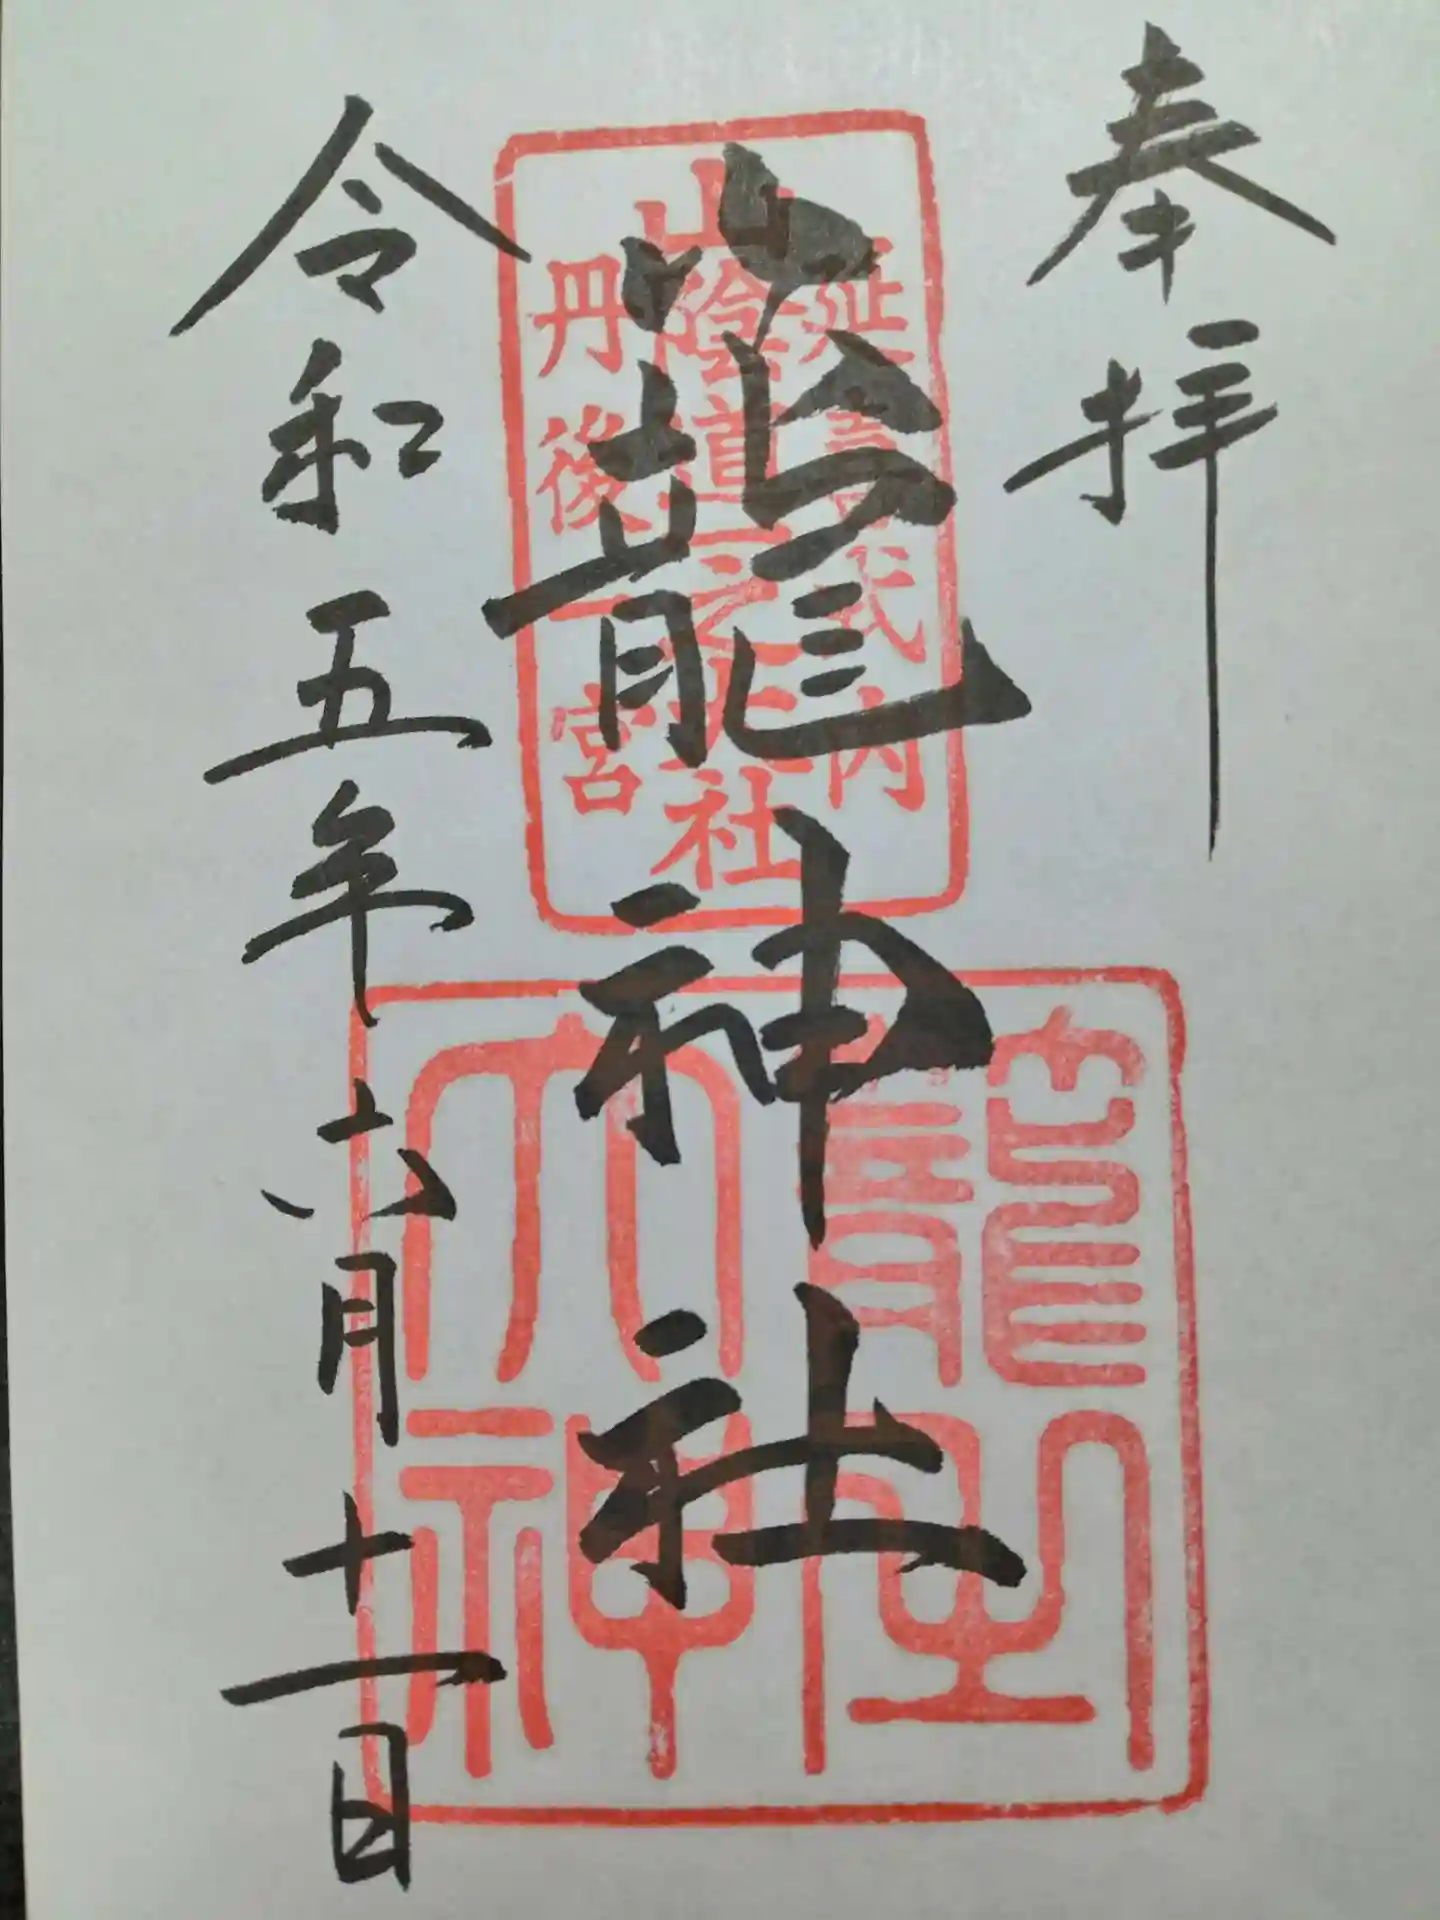 奉拝
延喜式内
山陰道一之大社
丹後一宮
籠神社
籠
大神
令和五年六月十一日